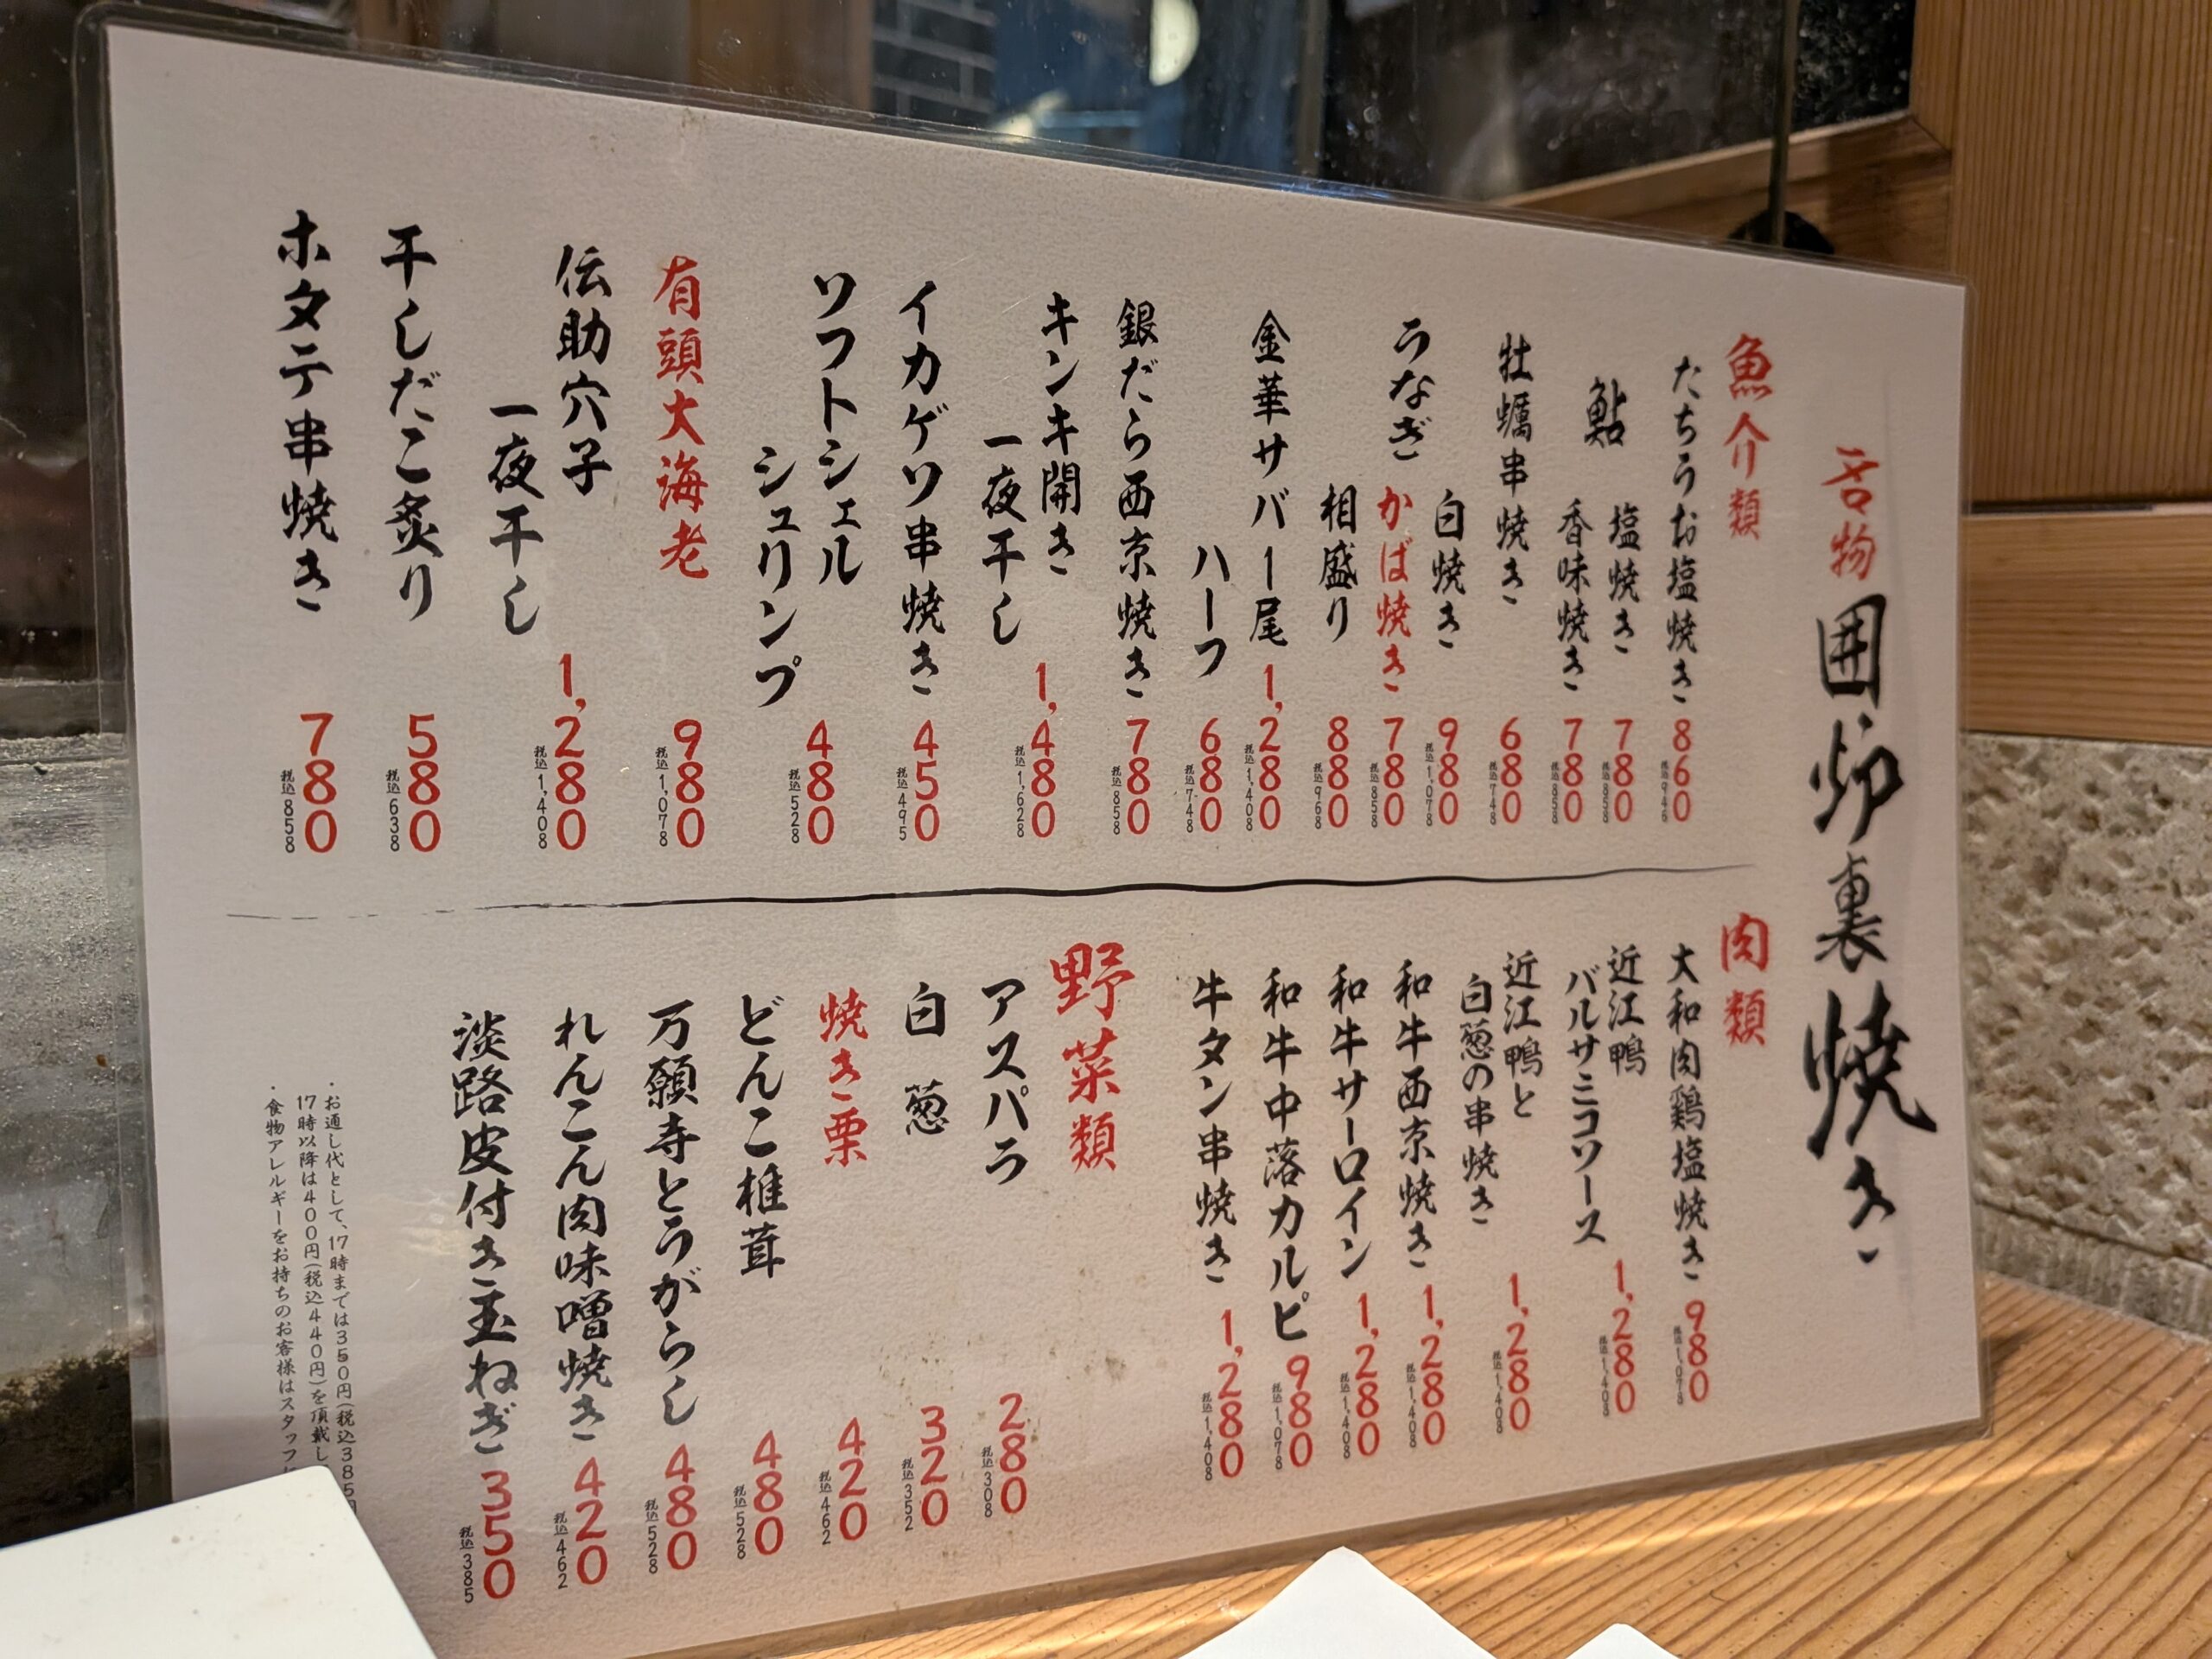 名物 囲炉裏焼き
魚介類
たちうお塩焼き 860 税込946
鮎 塩焼き 780 税込858
香味焼き 780 税込858
牡蠣串焼き 680 税込748
うなぎ 白焼き 980 税込1,078
かば焼き 780 税込858
相盛り 880 税込968
金華サバ 一尾 1,280 税込1,408
ハーフ 680 税込748
銀だら西京焼き 780 税込858
キンキ開き
一夜干し 1,480 税込1,628
イカゲソ串焼き 450 税込495
ソフトシェル
シュリンプ 480 税込528
有頭大海老 980 税込1,078
伝助穴子
一夜干し 1,280 税込1,408
干しだこ炙り 580 税込638
ホタテ串焼き 780 税込858
肉類
大和肉鶏塩焼き 980 税込1,078
近江鴨
バルサミコソース 1,280 税込1,408
近江鴨と
白葱の串焼き 1,280 税込1,408
和牛西京焼き 1,280 税込1,408
和牛サーロイン 1,280 税込1,408
和牛中落カルビ 980 税込1,078
牛タン串焼き 1,280 税込1,408
野菜類
アスパラ 280 税込308
白葱 320 税込352
焼き栗 420 税込462
どんこ椎茸 480 税込528
万願寺とうがらし 480 税込528
れんこん肉味噌焼き 420 税込462
淡路皮付き玉ねぎ 350 税込385
・お通し代として、17時までは350円(税込385円
17時以降は400円(税込440円)を頂戴し
・食物アレルギーをお持ちのお客様はスタッフ